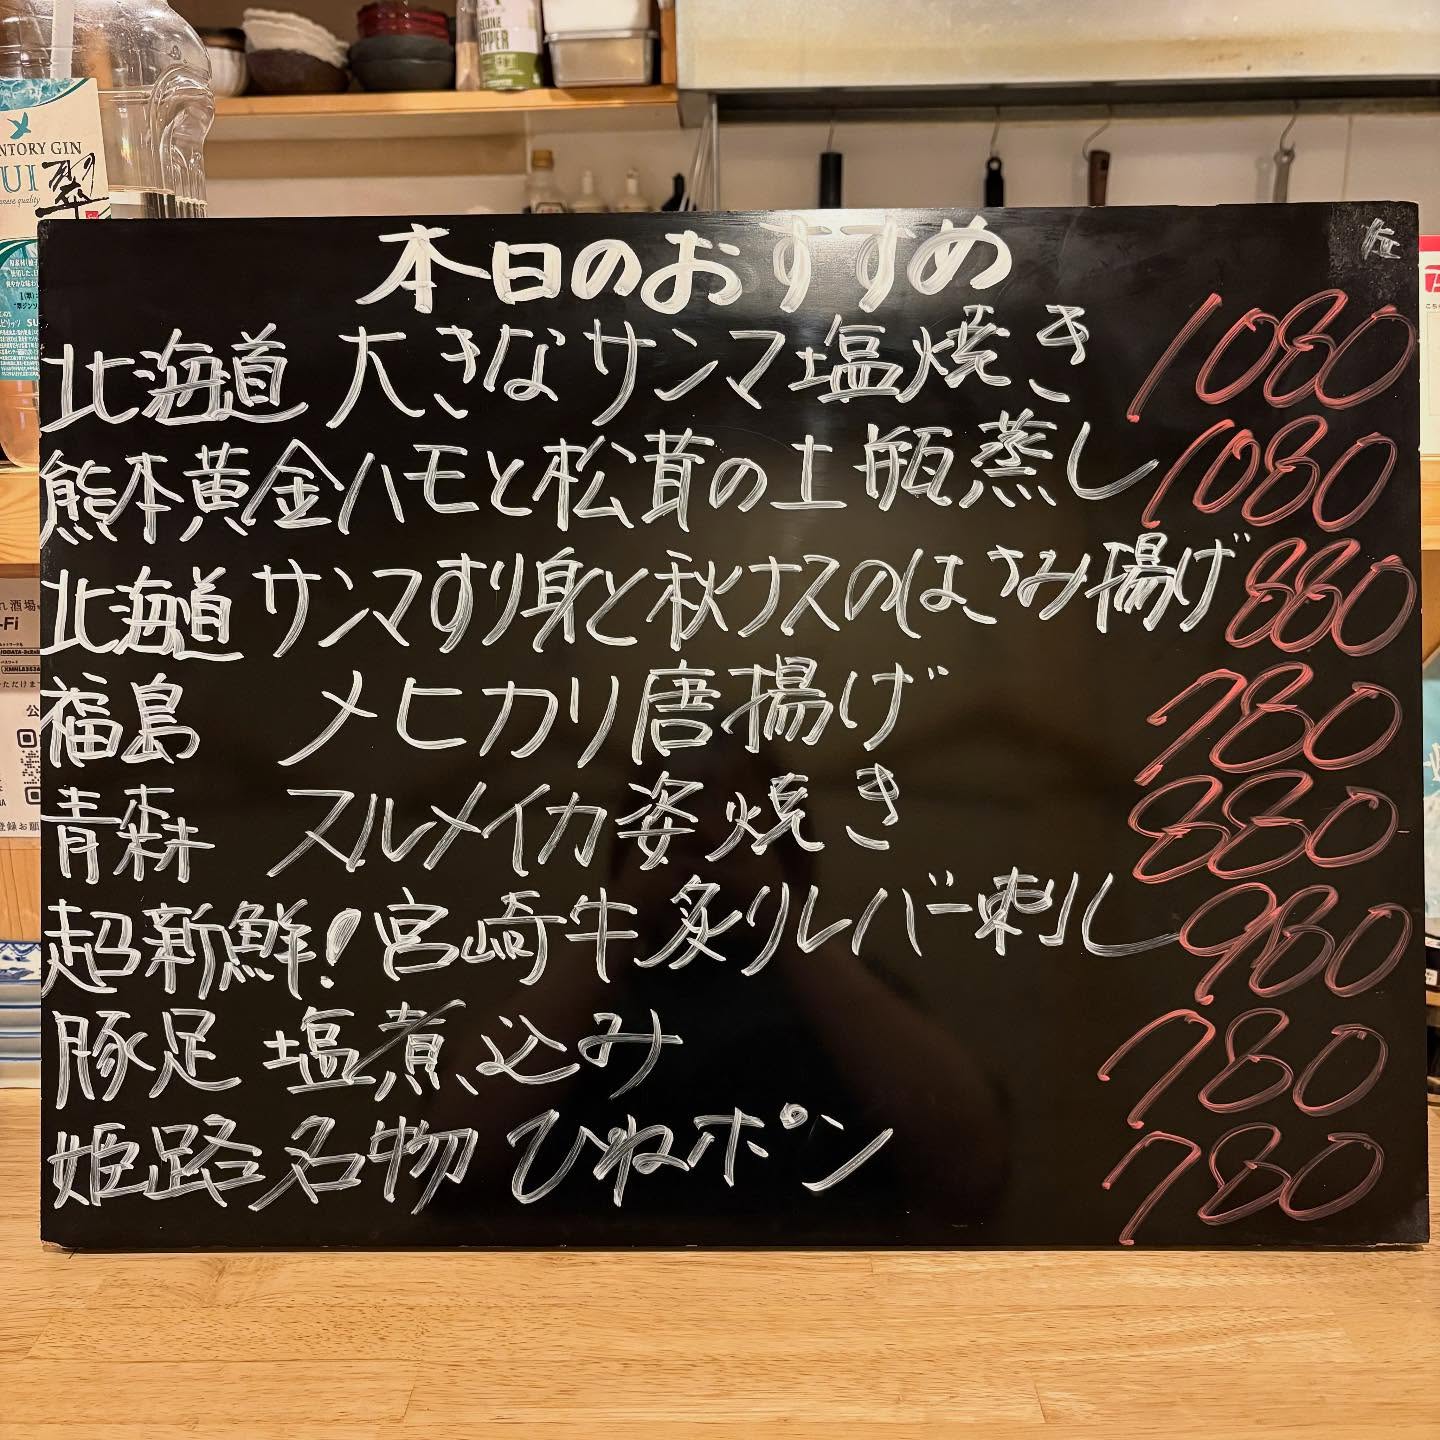 NTORY GIN
UI 翠
本日のおすすめ
北海道 大きなサンマ塩焼き 1080
熊本黄金ハモと松茸の土瓶蒸し 1080
北海道 サンマすり身と秋ナスのはさみ揚げ 880
福島 メヒカリ唐揚げ 780
青森 スルメイカ姿焼き 880
超新鮮!宮崎牛炙りレバー刺し 980
豚足 塩煮込み 780
姫路名物 ひねポン 780